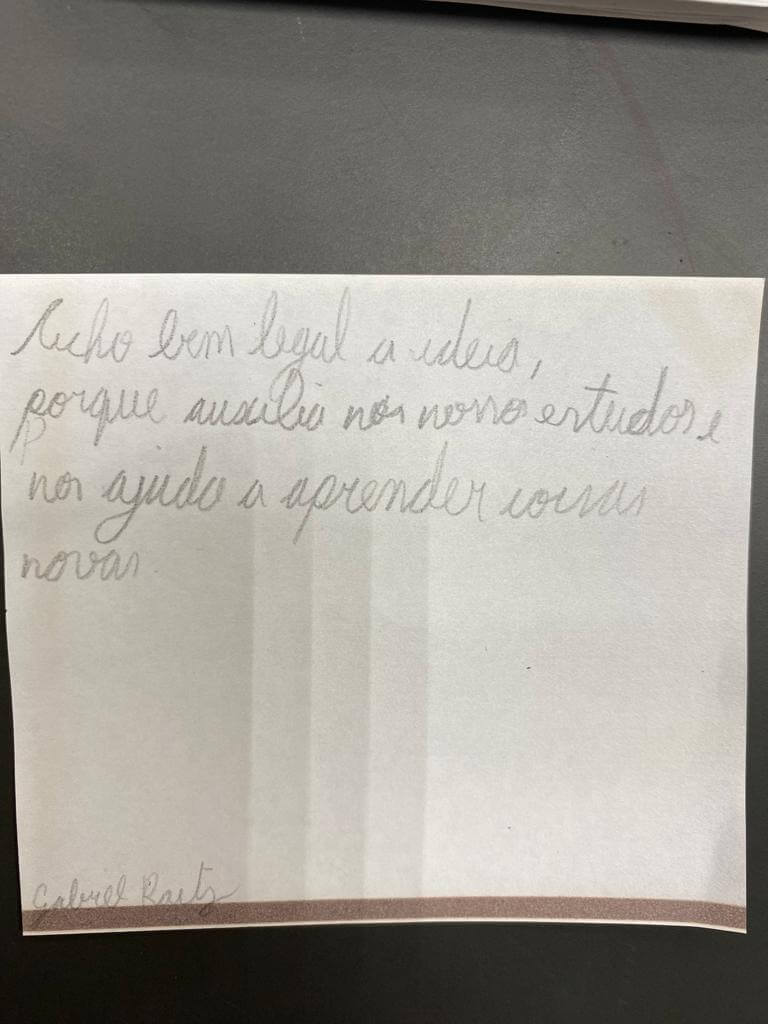 Acho bem legal a ideia,
porque auxilia nos nosso estudos e
nos ajuda a aprender coisas
novas
Gabriel Raitz